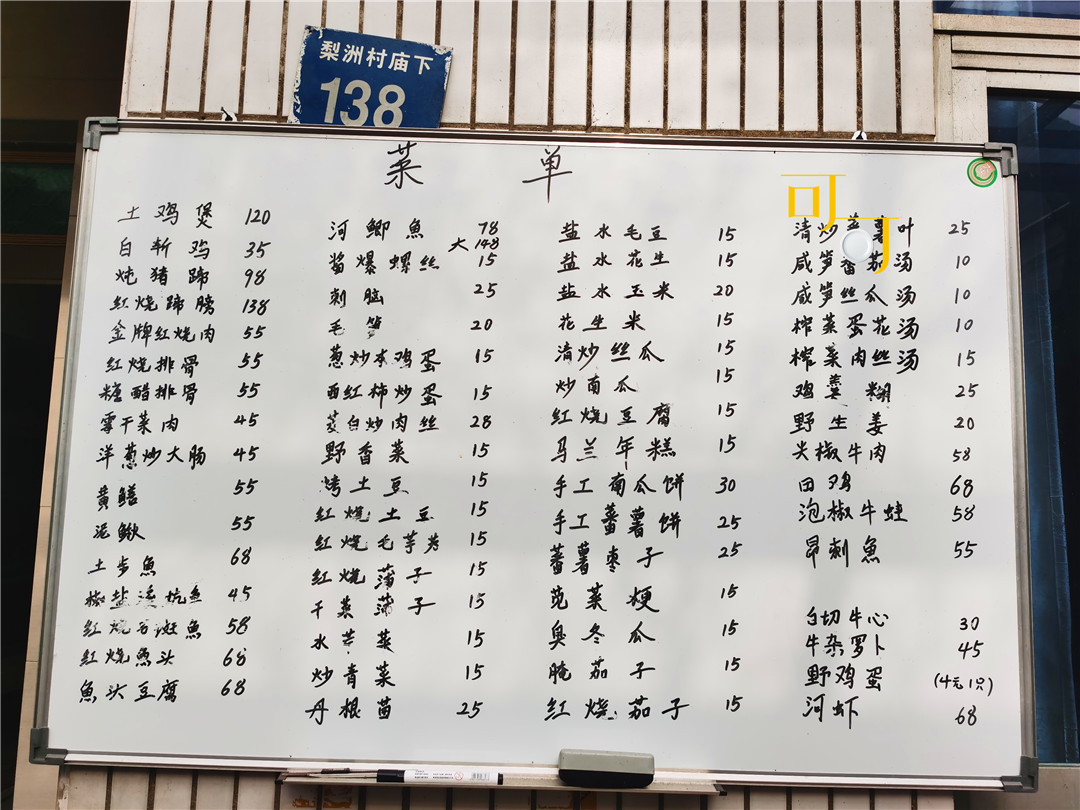 梨洲村庙下
138
菜单
可可
土鸡煲 120
白斩鸡 35
炖猪蹄 98
红烧蹄膀 138
金牌红烧肉 55
红烧排骨 55
糖醋排骨 55
霉干菜肉 45
洋葱炒大肠 45
黄鳝 55
泥鳅 55
土步魚 68
椒盐溪杭鱼 45
红烧石斑魚 58
红烧魚头 68
魚头豆腐 68
河鲫魚 78
大 148
酱爆螺丝 15
刺脑 25
毛笋 20
葱炒本鸡蛋 15
西红柿炒蛋 15
茭白炒肉丝 28
野香菜 15
烤土豆 15
红烧土豆 15
红烧毛芋艿 15
红烧蒲子 15
干菜蒲子 15
水芹菜 15
炒青菜 15
丹根苗 25
盐水毛豆 15
盐水花生 15
盐水玉米 20
花生米 15
清炒丝瓜 15
炒南瓜 15
红烧豆腐 15
马兰年糕 15
手工南瓜饼 30
手工蕃薯饼 25
蕃薯枣子 25
苋菜梗 15
臭冬瓜 15
腌茄子 15
红烧茄子 15
清炒蕃薯叶 25
咸笋番茄汤 10
咸笋丝瓜汤 10
榨菜蛋花汤 10
榨菜肉丝汤 15
鸡羹糊 25
野生姜 20
尖椒牛肉 58
田鸡 68
泡椒牛蛙 58
昂刺魚 55
白切牛心 30
牛杂罗卜 45
野鸡蛋 (4元1只)
河虾 68